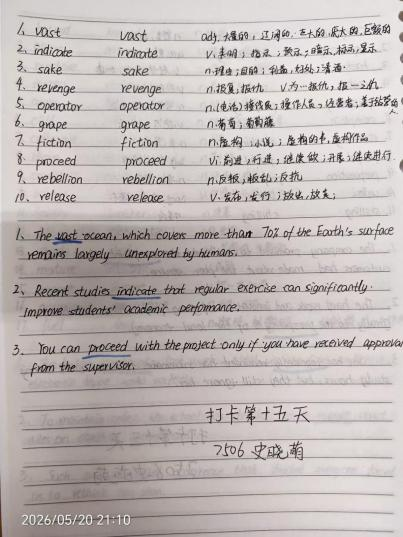 1、vast vast adj. 大量的，辽阔的，巨大的，庞大的，巨额的
2、indicate indicate v. 表明；指示；预示；暗示，标示，显示
3、sake sake n. 理由；目的；利益，好处；清酒
4、revenge revenge n. 报复，报仇 v. 为…报仇，报…之仇
5、operator operator n. (电话)接线员；操作人员；经营者；
6、grape grape n. 葡萄；葡萄藤
7、fiction fiction n. 虚构；小说；虚构的事，虚构作品
8、proceed proceed vi. 前进，行进；继续做；开展；继续进行
9、rebellion rebellion n. 反叛；叛乱；反抗
10、release release v. 发布，发行；放出，放走；
1、The vast ocean, which covers more than 70% of the Earth's surface
remains largely unexplored by humans.
2、Recent studies indicate that regular exercise can significantly
improve students' academic performance.
3、You can proceed with the project only if you have received approval
from the supervisor.
打卡第十五天
7506 史晓萌
2026/05/20 21:10